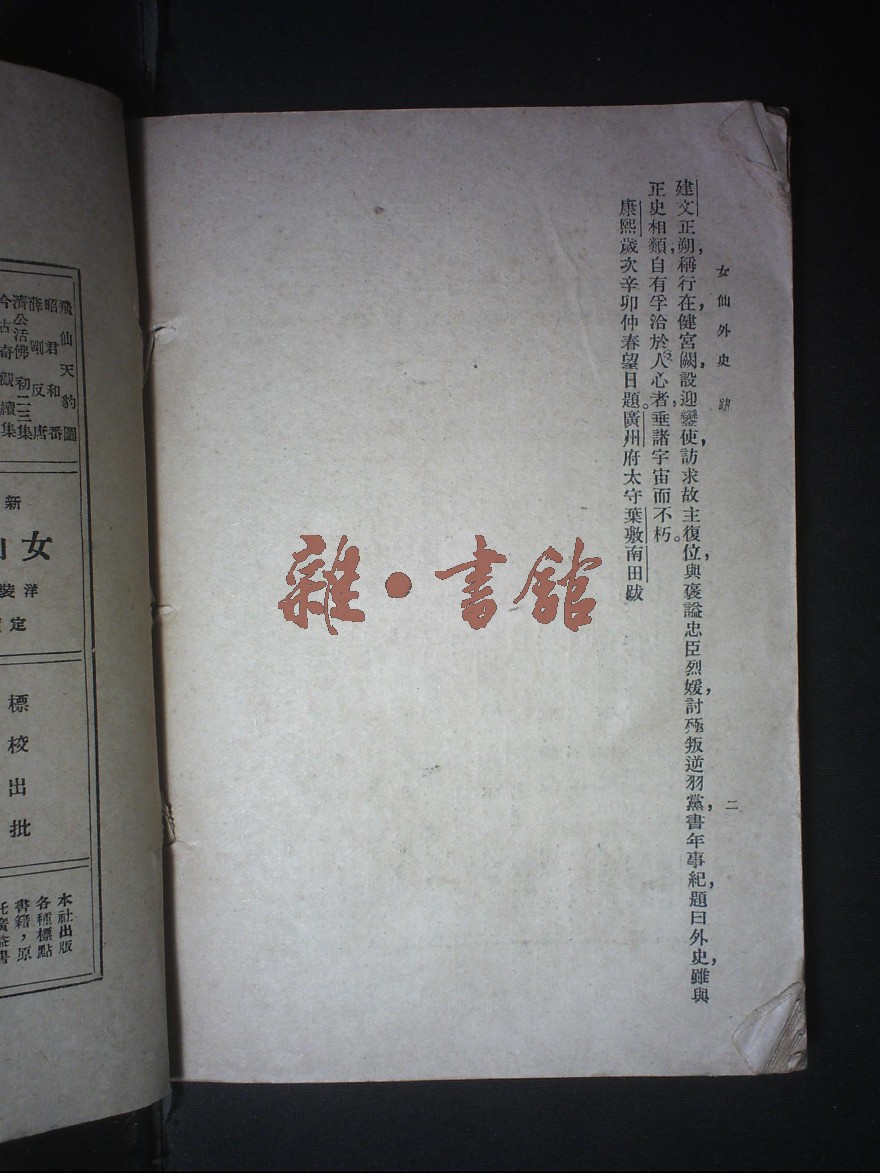 女仙外史 跋
二
建文正朔，稱行在，健宮闕，設迎鑾使，訪求故主復位，與褒謚忠臣烈媛，討殛叛逆羽黨，書年事紀，題曰外史，雖與
正史相類，自有孚洽於人心者，垂諸宇宙而不朽。
康熙歲次辛卯仲春望日題。廣州府太守葉敷南田跋
雜·書館
飛仙天豹圖
昭君和番
薛剛反唐
濟公活佛初二三集
今古奇觀續集
新
女
洋裝
定
標校出批
本社出版
各種標點
書籍，原